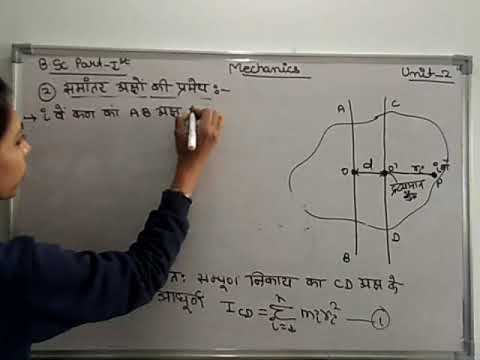 B.Sc Part-Ist
Mechanics
Unit-2
② समांतर अक्षों की प्रमेय :-
→ i वें कण का AB अक्ष
A
C
O
d
O'
ri
i
P
द्रव्यमान
केंद्र
B
D
अतः सम्पूर्ण निकाय का CD अक्ष के
आघूर्ण I_CD = Σ_{i=1}^{n} mi ri² —①